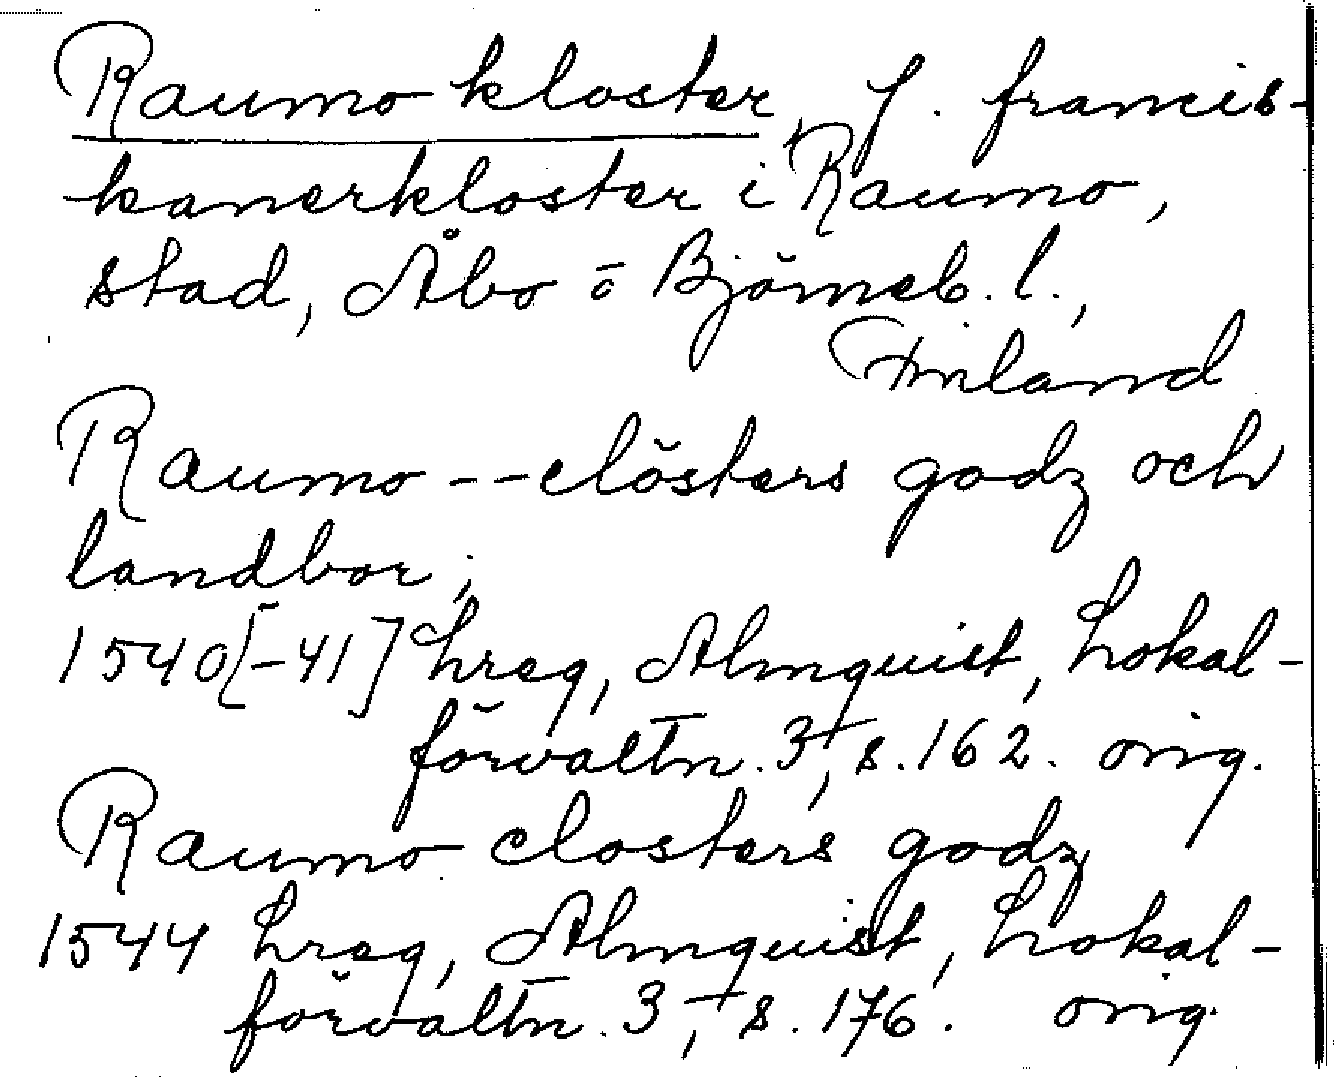 Raumo kloster, f. francis-
kanerkloster i Raumo,
stad, Åbo o Björneb. l.,
Finland
Raumo -- clösters godz och
landbor;
1540[-41] hreg, Almquist, Lokal-
förvaltn. 3, s. 162. orig.
Raumo closters godz
1544 hreg, Almquist, Lokal-
förvaltn. 3, s. 176. orig.